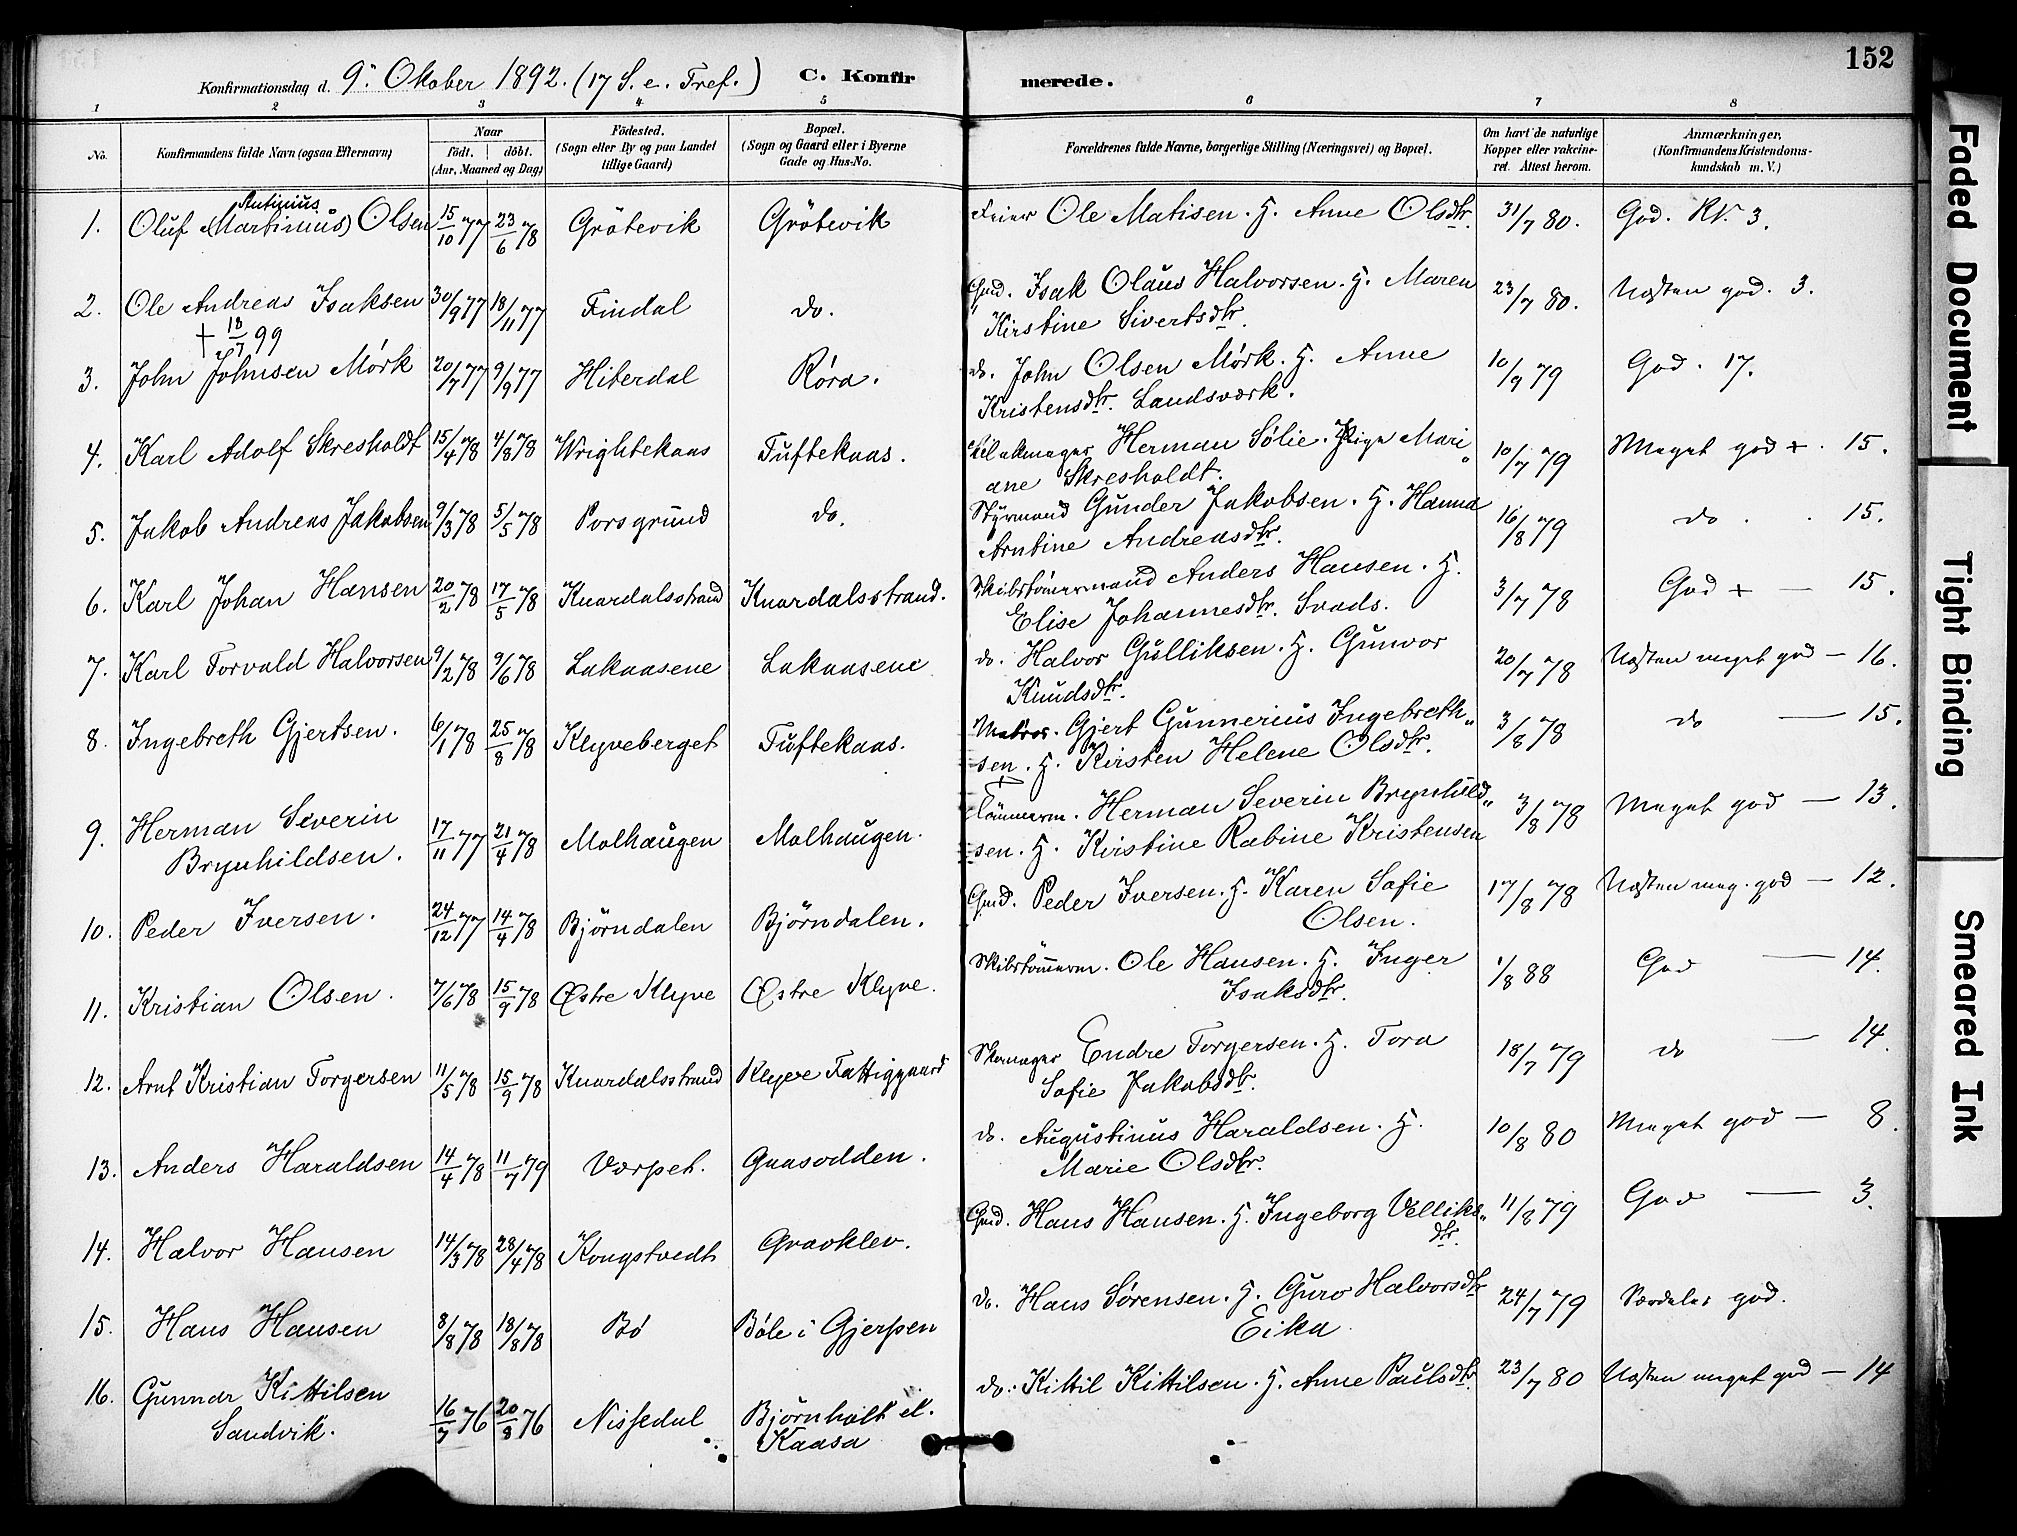 152
Konfirmationsdag d. 9de Oktober 1892. (17 S. e. Tref.) C. Konfirmerede.
1 2 3 4 5 6 7 8
No. Konfirmandens fulde Navn (ogsaa Efternavn) Naar födt. döbt. (Aar, Maaned og Dag) Födested. (Sogn eller By og paa Landet tillige Gaard) Bopæl. (Sogn og Gaard eller i Byerne Gade og Hus-No. Forældrenes fulde Navne, borgerlige Stilling (Næringsvei) og Bopæl. Om havt de naturlige Kopper eller vakcineret. Attest herom. Anmærkninger. (Konfirmandens Kristendomskundskab m. V.)
Antinius
1. Oluf (Martinius) Olsen 15/10 77 23/6 78 Grötevik Grötevik Feier Ole Matisen. H. Anne Olsdtr. 31/7 80. God. Kr. 3.
2. Ole Andreas Isaksen 30/9 77 18/11 77 Findal do. Gmd. Isak Olaus Halvorsen. H. Maren 23/7 80. Næsten god. 3.
+ 18/7 99 Kirstine Sivertsdtr.
3. John Johnsen Mörk 20/7 77 9/9 77 Hiterdal Röra. do. John Olsen Mörk. H. Anne 10/9 79 God. 17.
Kristensdtr. Landsværk.
4. Karl Adolf Skresholdt 15/4 78 4/8 78 Wrightekaas Tuftekaas. Herman Sölie. Pige Mari 10/7 79 Meget god + . 15.
ane Skresholdt.
5. Jakob Andreas Jakobsen 9/3 78 5/5 78 Porsgrund do. Styrmand Gunder Jakobsen. H. Hanna 16/8 79 do . . 15.
Arntine Andreasdtr.
6. Karl Johan Hansen 20/2 78 17/5 78 Knardalsstrand Knardalsstrand. Skibstömermand Anders Hansen. H. 3/7 78 God + — 15.
Elise Johannesdtr. Svads.
7. Karl Torvald Halvorsen 9/2 78 9/6 78 Lakaasene Lakaasene do. Halvor Gulliksen. H. Gunvor 20/7 78 Næsten meget god — 16.
Knudsdtr.
8. Ingebreth Gjertsen. 6/1 78 25/8 78 Klyveberget Tuftekaas. Matros. Gjert Gunnerius Ingebreth„ 3/8 78 do — 15.
sen. H. Kirsten Helene Olsdtr.
9. Herman Severin 17/11 77 21/4 78 Molhaugen Molhaugen. Tömmerm. Herman Severin Brynhild„ 3/8 78 Meget god — 13.
Brynhildsen. sen. H. Kirstine Rabine Kristensen
10. Peder Iversen. 24/12 77 14/4 78 Björndalen Björndalen. Gmd. Peder Iversen. H. Karen Sofie 17/8 78 Næsten meg. god — 12.
Olsen.
11. Kristian Olsen. 7/6 78 15/9 78 Östre Klyve Östre Klyve. Skibstömerm. Ole Hansen. H. Inger 1/8 88 God — 14.
Isaksdtr.
12. Arnt Kristian Torgersen 11/5 78 15/9 78 Knardalsstrand Klyve Fattiggaard Skomager Endre Torgersen. H. Tora 18/7 79 do — 14.
Sofie Jakobsdtr.
13. Anders Haraldsen 14/4 78 11/7 79 Vorpet. Gaasodden. do. Augustinus Haraldsen. H. 10/8 80 Meget god — 8.
Marie Olsdtr.
14. Halvor Hansen 14/3 78 28/4 78 Kongstvedt Gravklev. Gmd. Hans Hansen. H. Ingeborg Velliks„ 11/8 79 God — 3.
dtr.
15. Hans Hansen 8/8 78 18/8 78 Bö Böle i Gjerpen do. Hans Sörensen. H. Guro Halvorsdtr 24/7 79 Særdeles god.
Eika
16. Gunnar Kittilsen 16/7 76 20/8 76 Nissedal Björnholt el. do. Kittil Kittilsen. H. Anne Paulsdtr. 23/7 80 Næsten meget god — 14
Sandvik. Kaasa
Faded Document
Tight Binding
Smeared Ink